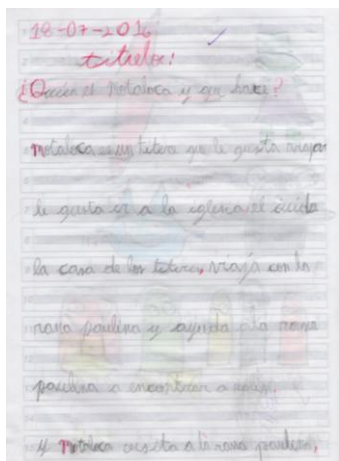 18-07-2016
titulo:
¿Quien es Motaloca y que hace?
Motaloca es un titere que le gusta viajar
le gusta ir a la iglesia, el cuida
la casa de los titeres, viaja con la
rana paulina y ayuda a la rana
paulina a encontrar a
y Motaloca a la rana paulina,